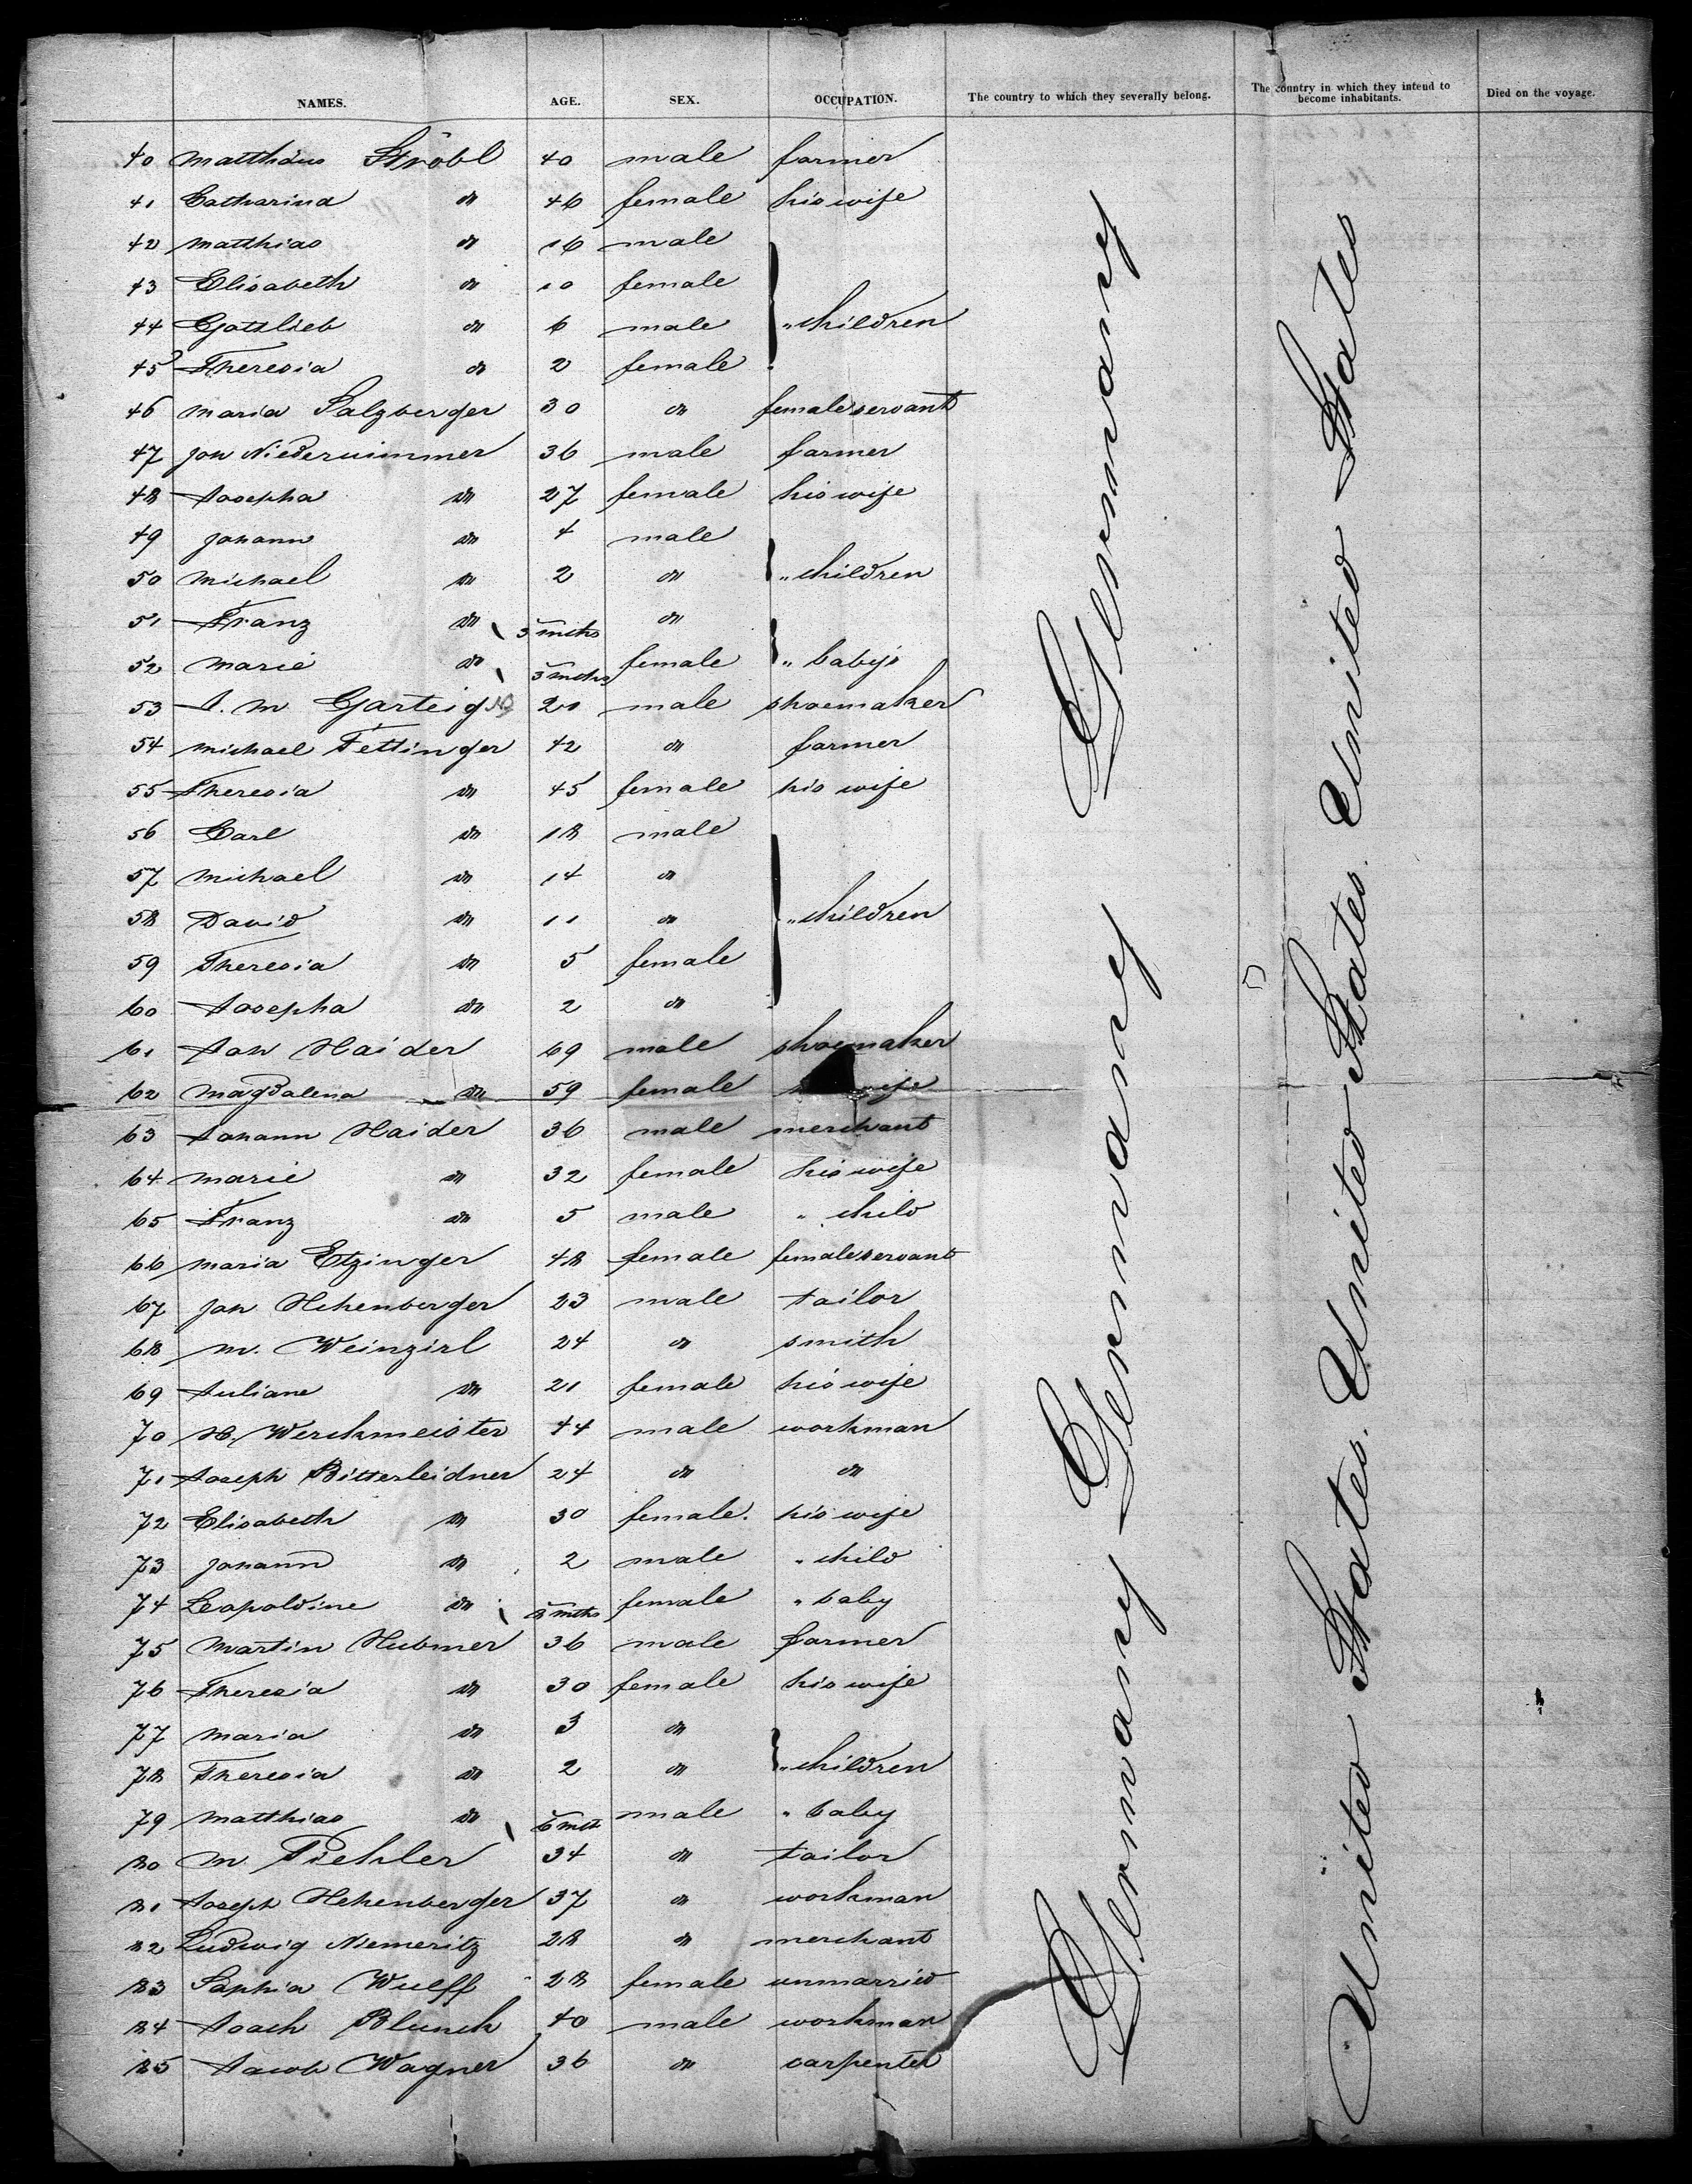 NAMES. AGE. SEX. OCCUPATION. The country to which they severally belong. The country in which they intend to become inhabitants. Died on the voyage.
40 Matthäus Ströbl 40 male farmer
41 Catharina do 46 female his wife
42 Matthias do 16 male
43 Elisabeth do 10 female
44 Gottlieb do 6 male " children
45 Theresia do 2 female
46 Maria Salzberger 30 do female servant
47 Joh Niedernimmer 36 male farmer
48 Josepha do 27 female his wife
49 Johann do 4 male
50 Michael do 2 do " children
51 Franz do 3 mths do
52 Marie do 3 mths female " baby's
53 J. M 20 male shoemaker
54 Michael Fettinger 42 do farmer
55 Theresia do 45 female his wife
56 Carl do 18 male
57 Michael do 14 do
58 David do 11 do " children
59 Theresia do 5 female
60 Josepha do 2 do
61 Joh Haider 69 male shoemaker
62 Magdalena do 59 female wife
63 Johann Haider 36 male merchant
64 Marie do 32 female his wife
65 Franz do 5 male " child
66 Maria Etzinger 48 female female servant
67 Joh Hehenberger 23 male tailor
68 M. Weinzirl 24 do smith
69 Juliane do 21 female his wife
70 H. Werckmeister 44 male workman
71 Joseph Bitterleidner 24 do do
72 Elisabeth do 30 female. his wife
73 Johann do 2 male " child
74 Leopoldine do 8 mths female " baby
75 Martin Hubmer 36 male farmer
76 Theresia do 30 female his wife
77 Maria do 3 do
78 Theresia do 2 do " children
79 Matthias do 6 mth male " baby
80 M. Piehler 34 do tailor
81 Joseph Hehenberger 37 do workman
82 Ludwig Niemeritz 28 do merchant
83 Sophia Wulff 28 female unmarried
84 Joach Blunck 40 male workman
85 Jacob Wagner 36 do carpenter
Germany Germany Germany
United States United States. United States